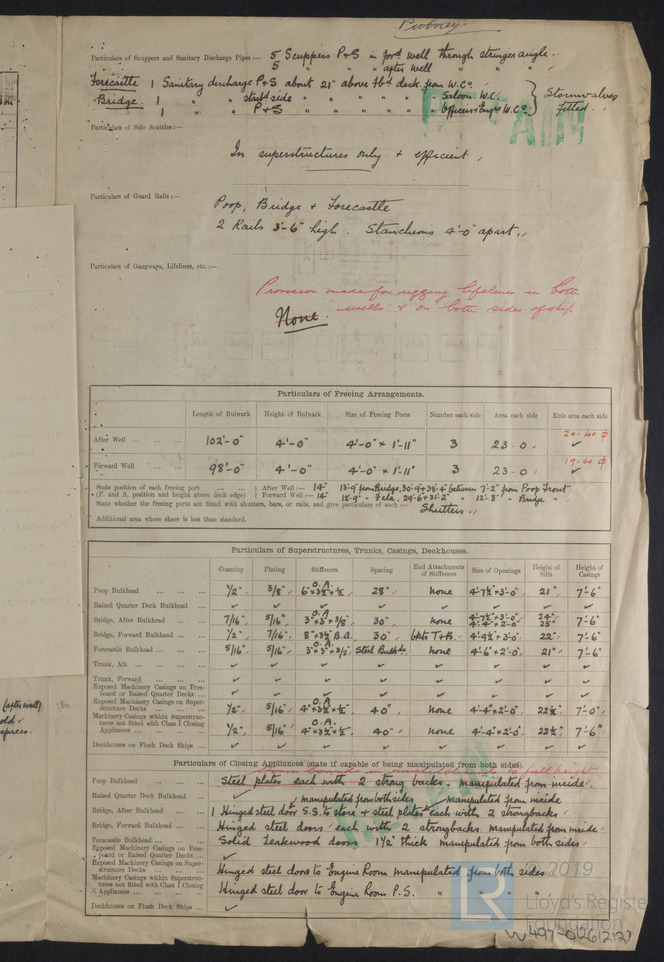 Particulars of Scuppers and Sanitary Discharge Pipes :— 5 Scuppers P&S in for'd well through stringer angle.
5 " " " after well " " "
Forecastle 1 Sanitary discharge P&S about 21" above Fbd deck from W.C.
Bridge. 1 " " starb'd side " " " " Saloon W.C. Stormvalves
1 " " P&S " " " " Officers & Engrs W.C. fitted.
Particulars of Side Scuttles :—
In superstructures only & efficient,
Particulars of Guard Rails :—
Poop, Bridge & Forecastle
2 Rails 3'-6" high. Stanchions 4'-0" apart.
Particulars of Gangways, Lifelines, etc. :—
Provision made for rigging lifelines in both
wells & on both sides of ship
None.
Particulars of Freeing Arrangements.
Length of Bulwark Height of Bulwark Size of Freeing Ports Number each side Area each side Rule area each side
After Well 102'-0" 4'-0" 4'-0" × 1'-11" 3 23.0 20.40 ✓
Forward Well 98'-0" 4'-0" 4'-0" × 1'-11" 3 23.0 19.60 ✓
State position of each freeing port After Well :— 14" 13'-9" from Bridge, 30'-9" & 38'-4" between 7'-2" from Poop Front
(F. and A. position and height above deck edge) Forward Well :— 14" 12'-9" " Fcle, 29'-6 & 31'-2" " 12'-8" " Bridge "
State whether the freeing ports are fitted with shutters, bars, or rails, and give particulars of such :— Shutters.
Additional area where sheer is less than standard.
Particulars of Superstructures, Trunks, Casings, Deckhouses.
Coaming Plating Stiffeners Spacing End Attachments of Stiffeners Size of Openings Height of Sills Height of Casings
Poop Bulkhead 1/2" 3/8" O.A. 6" × 3½ × ½ 28" none 4'-7½" × 3'-0" 21" 7'-6"
Raised Quarter Deck Bulkhead ✓ ✓ ✓ ✓ ✓ ✓ ✓ ✓
Bridge, After Bulkhead 7/16" 5/16" O.A. 3" × 3" × 3/8" 30" none 4'-7½" × 3'-0" 4'-4" × 2'-0" 24" 25" 7'-6"
Bridge, Forward Bulkhead 1/2" 7/16" 8" × 3½" B.A. 30" bkts T&B. 4'-9½" × 3'-0" 22" 7'-6"
Forecastle Bulkhead 5/16" 5/16" O.A. 3" × 3" × 3/8" Steel Bulkhds none 4'-6" × 2'-0" 21" 7'-6"
Trunk, Aft ✓ ✓ ✓ ✓ ✓ ✓ ✓ ✓
Trunk, Forward ✓ ✓ ✓ ✓ ✓ ✓ ✓ ✓
Exposed Machinery Casings on Freeboard or Raised Quarter Decks ✓ ✓ ✓ ✓ ✓ ✓ ✓ ✓
Exposed Machinery Casings on Superstructure Decks 1/2" 5/16" O.A. 4" × 3½ × ½" 40" none 4'-4" × 2'-0" 22½" 7'-0"
Machinery Casings within Superstructures not fitted with Class I Closing Appliances 1/2" 5/16" O.A. 4" × 3½ × ½" 40" none 4'-4" × 2'-0" 22½" 7'-6"
Deckhouses on Flush Deck Ships ✓ ✓ ✓ ✓ ✓ ✓ ✓ ✓
Particulars of Closing Appliances (state if capable of being manipulated from both sides).
Poop Bulkhead Steel plates each with 2 strong backs. manipulated from inside
Raised Quarter Deck Bulkhead ✓ manipulated from both sides manipulated from inside
Bridge, After Bulkhead 1 Hinged steel door S.S. to store & steel plates each with 2 strongbacks
Bridge, Forward Bulkhead Hinged steel doors each with 2 strongbacks manipulated from inside
Forecastle Bulkhead Solid Teakwood doors 1½" thick manipulated from both sides
Exposed Machinery Casings on Freeboard or Raised Quarter Decks ✓
Exposed Machinery Casings on Superstructure Decks Hinged steel doors to Engine Room manipulated from both sides
Machinery Casings within Superstructures not fitted with Class I Closing Appliances Hinged steel door to Engine Room P.S. " " " "
Deckhouses on Flush Deck Ships ✓
(after well)
© 2019
LR
Lloyd's Register
Foundation
W497-0126(2/2)